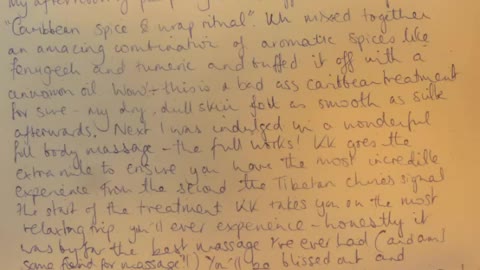 my afternoon
"Caribbean spice & wrap ritual". KK mixed together
an amazing combination of aromatic spices like
fenugeek and tumeric and buffed it off with a
cinnamon oil. Wow! this is a bad ass caribbean treatment
for sure - my dry, dull skin felt as smooth as silk
afterwards. Next I was indulged in a wonderful
full body massage - the full works! KK goes the
extra mile to ensure you have the most incredible
experience from the second the Tibetan chimes signal
the start of the treatment KK takes you on the most
relaxing trip you'll ever experience - honestly it
was by far the best massage I've ever had (and am
some fiend for massage!) You'll be blissed out and